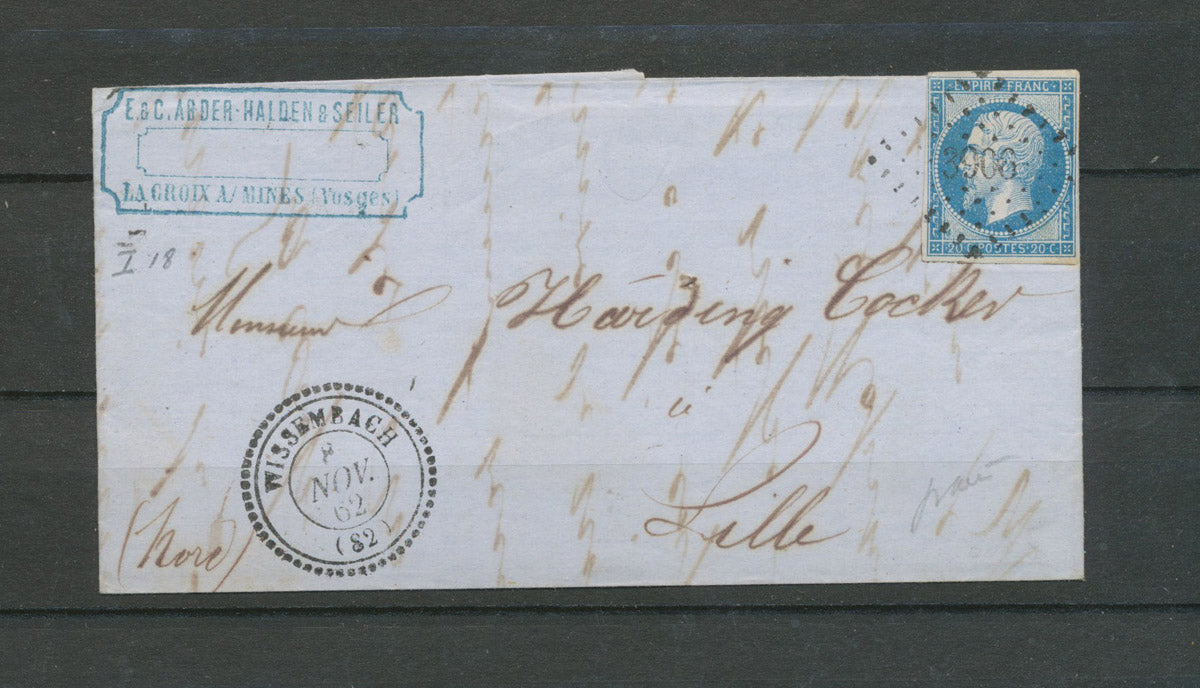 E & C. ABDER-HALDEN & SEILER
LA CROIX A/ MINES (Vosges)
EMPIRE FRANC
3906
20 C POSTES 20 C
I 18
Monsieur Harding Cocker
à
Lille
(Nord)
WISSEMBACH
8
NOV.
62
(82)